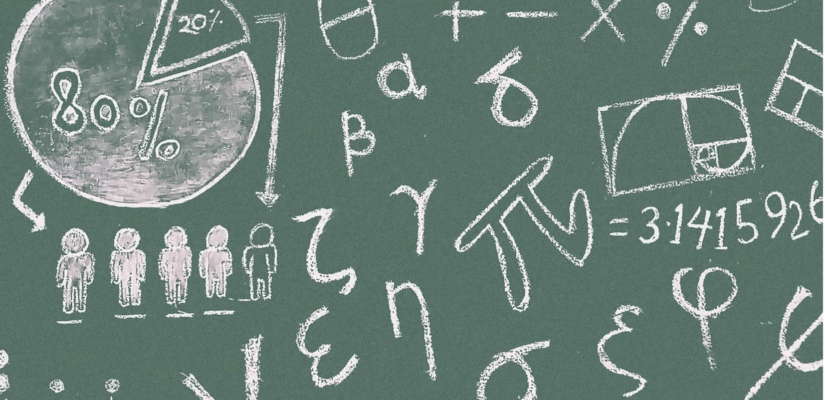 20%
80%
θ + − × %
α δ
β
γ
π = 3.1415926
ζ
η
ε
φ
ξ
σ
ψ